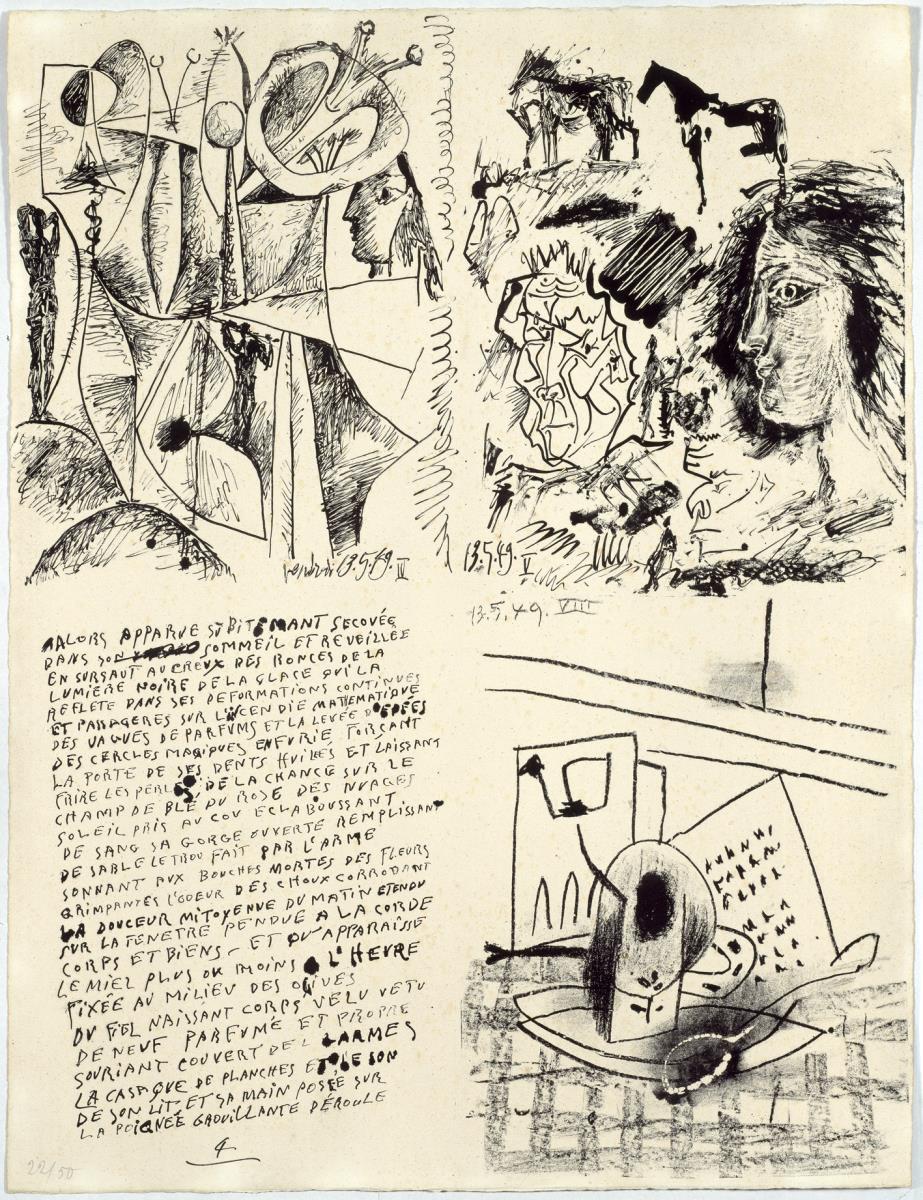 vendredi 13.5.49. IV
13.5.49. V
13.5.49. VIII
ALORS APPARUE SUBITEMANT SECOVÉE
DANS SON SOMMEIL ET REVEILLÉE
EN SURSAUT AU CREUX DES RONCES DE LA
LUMIÈRE NOIRE DE LA GLACE QUI LA
REFLETE DANS SES DEFORMATIONS CONTINUES
ET PASSAGERES SUR L'INCENDIE MATHEMATIQUE
DES VAGUES DE PARFUMS ET LA LEVÉE D'EPÉES
DES CERCLES MAGIQUES EN FURIE FORÇANT
LA PORTE DE SES DENTS HUILÉS ET LAISSANT
FRIRE LES PERLES DE LA CHANCE SUR LE
CHAMP DE BLÉ DU ROSE DES NUAGES
SOLEIL PRIS AU COU ECLABOUSSANT
DE SANG SA GORGE OUVERTE REMPLISSANT
DE SABLE LE TROU FAIT PAR L'ARME
SONNANT AUX BOUCHES MORTES DES FLEURS
GRIMPANTES L'ODEUR DES CHOUX CORRODANT
LA DOUCEUR MITOYENNE DU MATIN ETENDU
SUR LA FENETRE PENDUE A LA CORDE
CORPS ET BIENS - ET QU'APPARAÎSSE
LE MIEL PLUS OU MOINS A L'HEVRE
FIXÉE AU MILIEU DES OLIVES
DU FIEL NAISSANT CORPS VELU VETU
DE NEUF PARFUMÉ ET PROPRE
SOURIANT COUVERT DE LARMES
LA CASAQUE DE PLANCHES ET LE SON
DE SON LIT ET SA MAIN POSÉE SUR
LA POIGNÉE GROUILLANTE DÉROULE
4
22/50